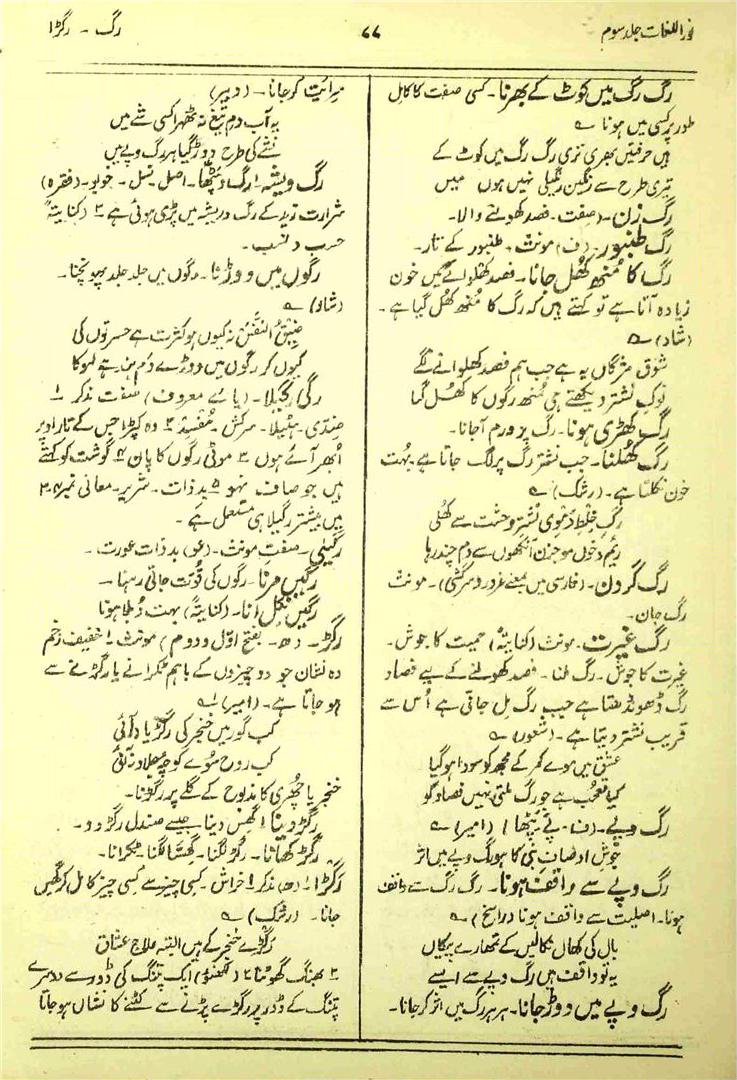 نور اللغات جلد سوم
۷۷
رگ ۔ رگڑا
رگ رگ میں کوٹ کے بھرنا۔ کسی صفت کا کامل
طور پر کسی میں ہونا ؎
ہیں حرفتیں بھری تری رگ رگ میں کوٹ کے
تیری طرح سے رنگین رنگیلی نہیں ہوں میں
رگ زن۔ (صفت۔ فصد کھولنے والا۔
رگ طنبور۔ (ف) مونث۔ طنبور کے تار۔
رگ کا مُنھ کھُل جانا۔ فصد کھلوانے میں خون
زیادہ آتا ہے تو کہتے ہیں کہ رگ کا منھ کھل گیا ہے۔
(شاد) ؎
شوق مژگاں یہ ہے جب ہم فصد کھلوانے لگے
نوک نشتر دیکھتے ہی مُنھ رگوں کا کھل گیا
رگ کھڑی ہونا۔ رگ پر ورم آجانا۔
رگ کھُلنا۔ جب نشتر رگ پر لگ جاتا ہے۔ بہت
خون نکلتا ہے۔ (رشک) ؎
رگِ خلطِ دَموِی نشترِ وحشت سے کھُلی
ریم و خوں موجزن آنکھوں سے دم چند رہا
رگ گردن۔ (فارسی میں بمعنے غرور و سرکشی)۔ مونث
رگ جان۔
رگ غیرت۔ مونث (کنایتہً) حمیت کا جوش۔
غیرت کا جوش۔ رگ ملنا۔ فصد کھولنے کے لیے فصاد
رگ ڈھونڈھتا ہے جب رگ مل جاتی ہے اُس سے
قریب نشتر دیتا ہے۔ (شعور) ؎
عشق میں موے کمر کے مجھ کو سودا ہو گیا
کیا تعجب ہے جو رگ ملتی نہیں فصاد کو
رگ و پے۔ (ف۔ پے۔ پٹھا) (امیر) ؎
جوشِ اوصافِ نبی کا ہو رگ و پے میں اثر
رگ و پے سے واقف ہونا۔ رگ رگ سے واقف
ہونا۔ اصلیت سے واقف ہونا (راسخ) ؎
بال کی کھال نکالیں گے تمھارے پیکاں
یہ تو واقف ہیں رگ و پے سے ایسے
رگ و پے میں دوڑ جانا۔ ہر ہر رگ میں اثر کر جانا۔
سرایت کر جانا۔ (دبیر)
یہ آب دمِ تیغ نہ ٹھہرا کسی شے میں
نشے کی طرح دوڑ گیا ہر رگ و پے میں
رگ و ریشہ۔ رگ و پٹھا۔ اصل۔ نسل۔ خو بو۔ (فقرہ)
شرارت زید کے رگ و ریشہ میں پڑی ہوئی ہے ۲ (کنایتہً)
حسب و نسب۔
رگوں میں دوڑنا۔ رگوں میں جلد جلد پہونچنا۔
(شاد) ؎
ضیق النفَس نہ کیوں ہو کثرت ہے حسرتوں کی
کیوں کر رگوں میں دوڑے دم بن کے لہو کا
رگی۔ رگیلا۔ (یائے معروف) صفت مذکر ۱
ضدی۔ ہٹیلا۔ سرکش۔ مُفسِد ۲ وہ کپڑا جس کے تار اوپر
اُبھر آئے ہوں ۳ موٹی رگوں کا پان ۴ گوشت کو کہتے
ہیں جو صاف نہ ہو ۵ بد ذات۔ شریر۔ معانی نمبر ۲۔۴
میں بیشتر رگیلا ہی مستعمل ہے۔
رگیلی۔ صفت مونث۔ (عو) بد ذات عورت۔
رگیں مرنا۔ رگوں کی قوت جاتی رہنا۔
رگیں نکل آنا۔ (کنایتہً) بہت دُبلا ہونا
رگڑ۔ (ھ۔ بفتح اوّل و دوم) مونث ۱ خفیف زخم
وہ نشان جو دو چیزوں کے باہم ٹکرانے یا رگڑنے سے
ہو جاتا ہے۔ (امیر) ؎
کب گور میں خنجر کی رگڑ یاد نہ آئی
کب روح موے کوچہ جلاد نہ آئی
خنجر یا چھری کا مذبوح کے گلے پر رگڑنا۔
رگڑ دینا۔ گھس دینا جیسے صندل رگڑ دو۔
رگڑ کھانا۔ رگڑ لگنا۔ گھسّا لگنا ٹکرانا۔
رگڑا۔ (ھ) مذکر ۱ خراش۔ کسی چیز سے کسی چیز کا مل کر گھس
جانا۔ (رشک) ؎
رگڑے خنجر کے ہیں البتہ علاجِ عشاق
۲ بھنگ گھوٹنا ۳ (لکھنؤ) ایک پتنگ کی ڈور سے دوسرے
پتنگ کے ڈور پر رگڑے پڑنے سے کٹنے کا نشان ہو جاتا